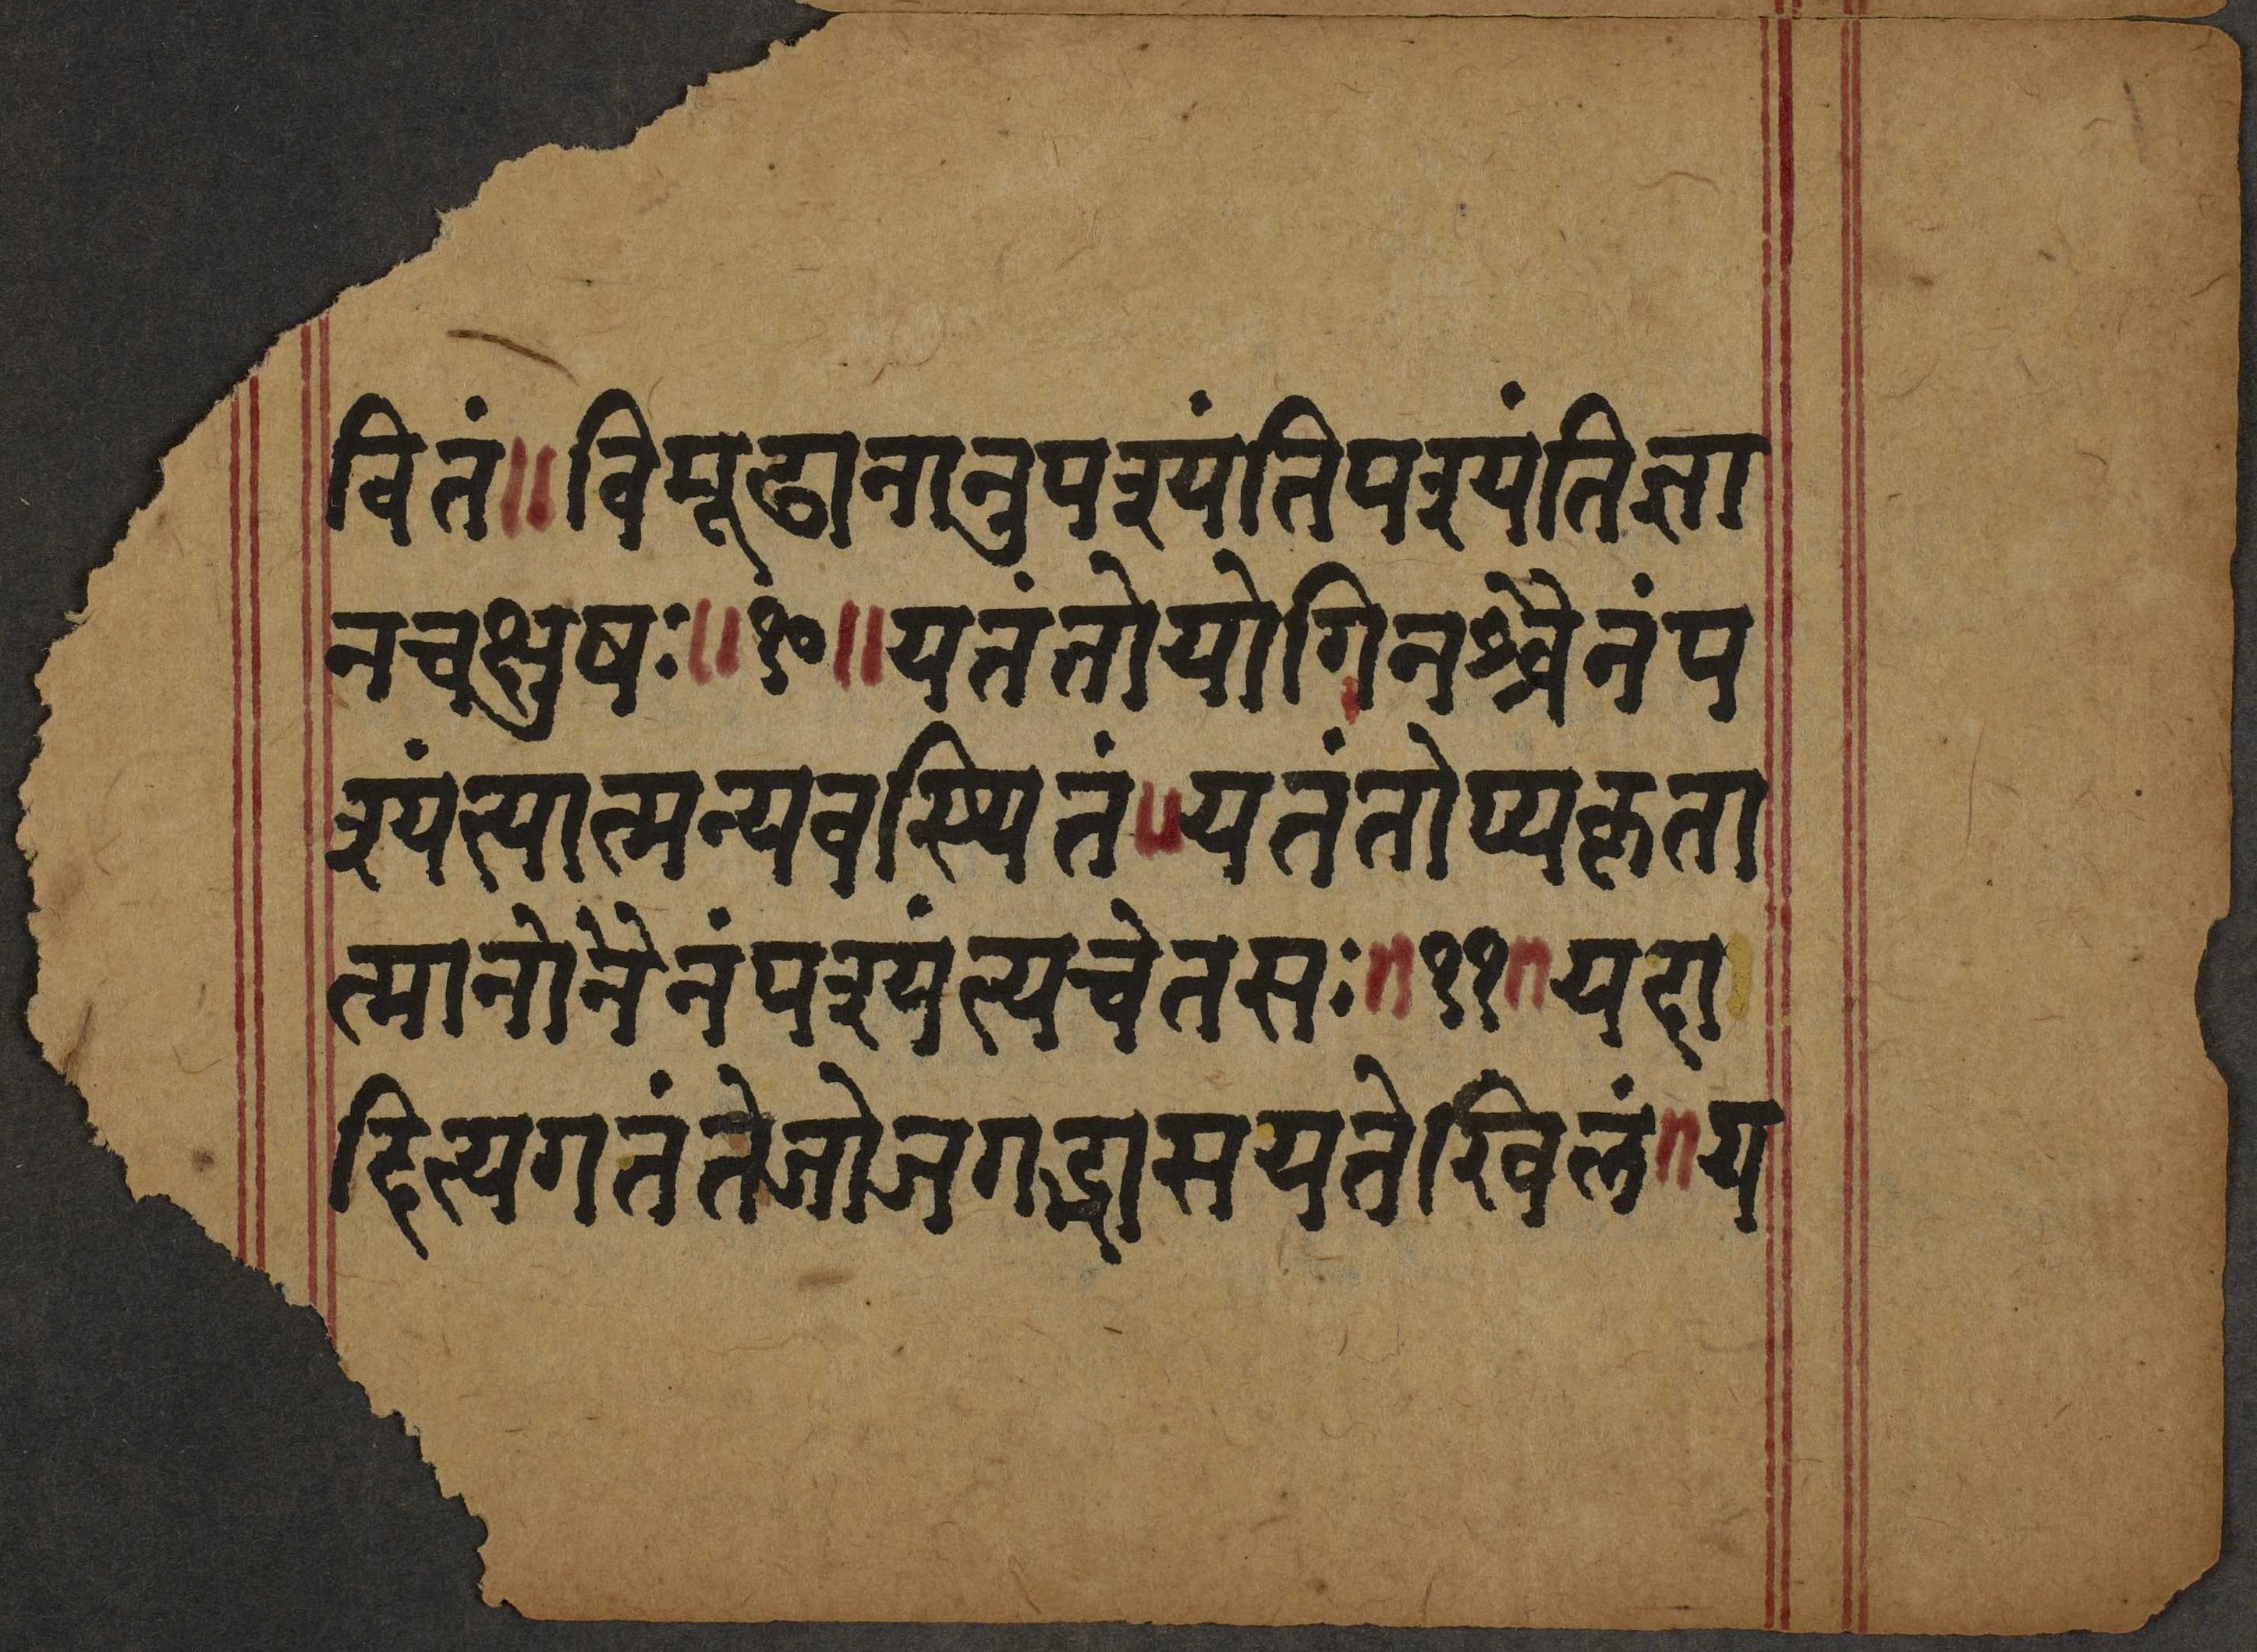 वितं॥विमूढानानुपश्यंतिपश्यंतिज्ञा
नचक्षुषः॥१०॥यतंतोयोगिनश्चैनंप
श्यंत्यात्मन्यवस्थितं॥यतंतोप्यकृता
त्मानोनैनंपश्यंत्यचेतसः॥११॥यदा
दित्यगतंतेजोजगद्भासयतेखिलं॥य